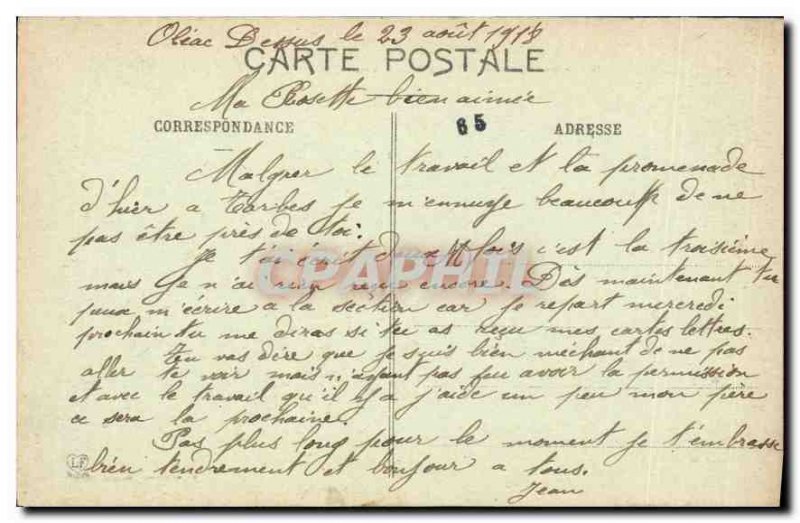 Oléac Dessus le 23 août 1918
CARTE POSTALE
Ma Rosette bien aimée
CORRESPONDANCE
65
ADRESSE
Malgrer le travail et la promenade
d'hier a Tarbes je m'ennuye beaucoup de ne
pas être près de toi.
Je t'ai écrit deux fois c'est la troisième
mais je n'ai rien reçu encore. Dès maintenant tu
peux m'écrire a la section car je repart mercredi
prochain tu me diras si tu as reçu mes cartes lettres.
Tu vas dire que je suis bien méchant de ne pas
aller te voir mais n'ayant pas pu avoir la permission
et avec le travail qu'il y a j'aide un peu mon père
ce sera la prochaine.
Pas plus long pour le moment je t'embrasse
bien tendrement et bonjour a tous.
Jean
LF
CPAPHIL